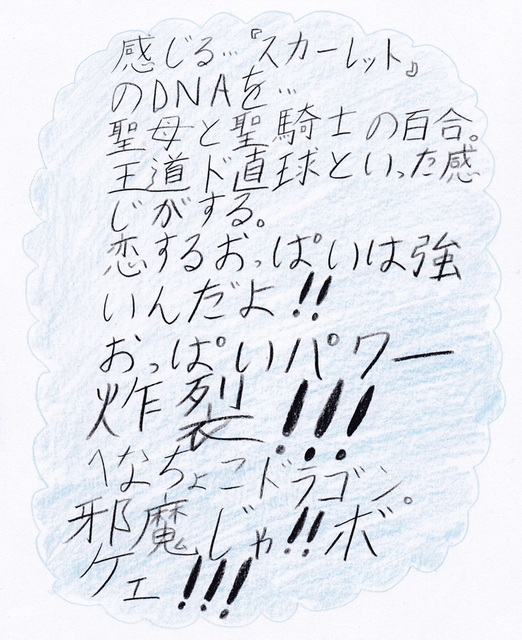 感じる…『スカーレット』
のDNAを…
聖母と聖騎士の百合。
王道ド直球といった感
じがする。
恋するおっぱいは強
いんだよ!!
おっぱいパワー
炸裂!!!
へなちょこドラゴン。
邪魔じゃ!!ボ
ケェ!!!